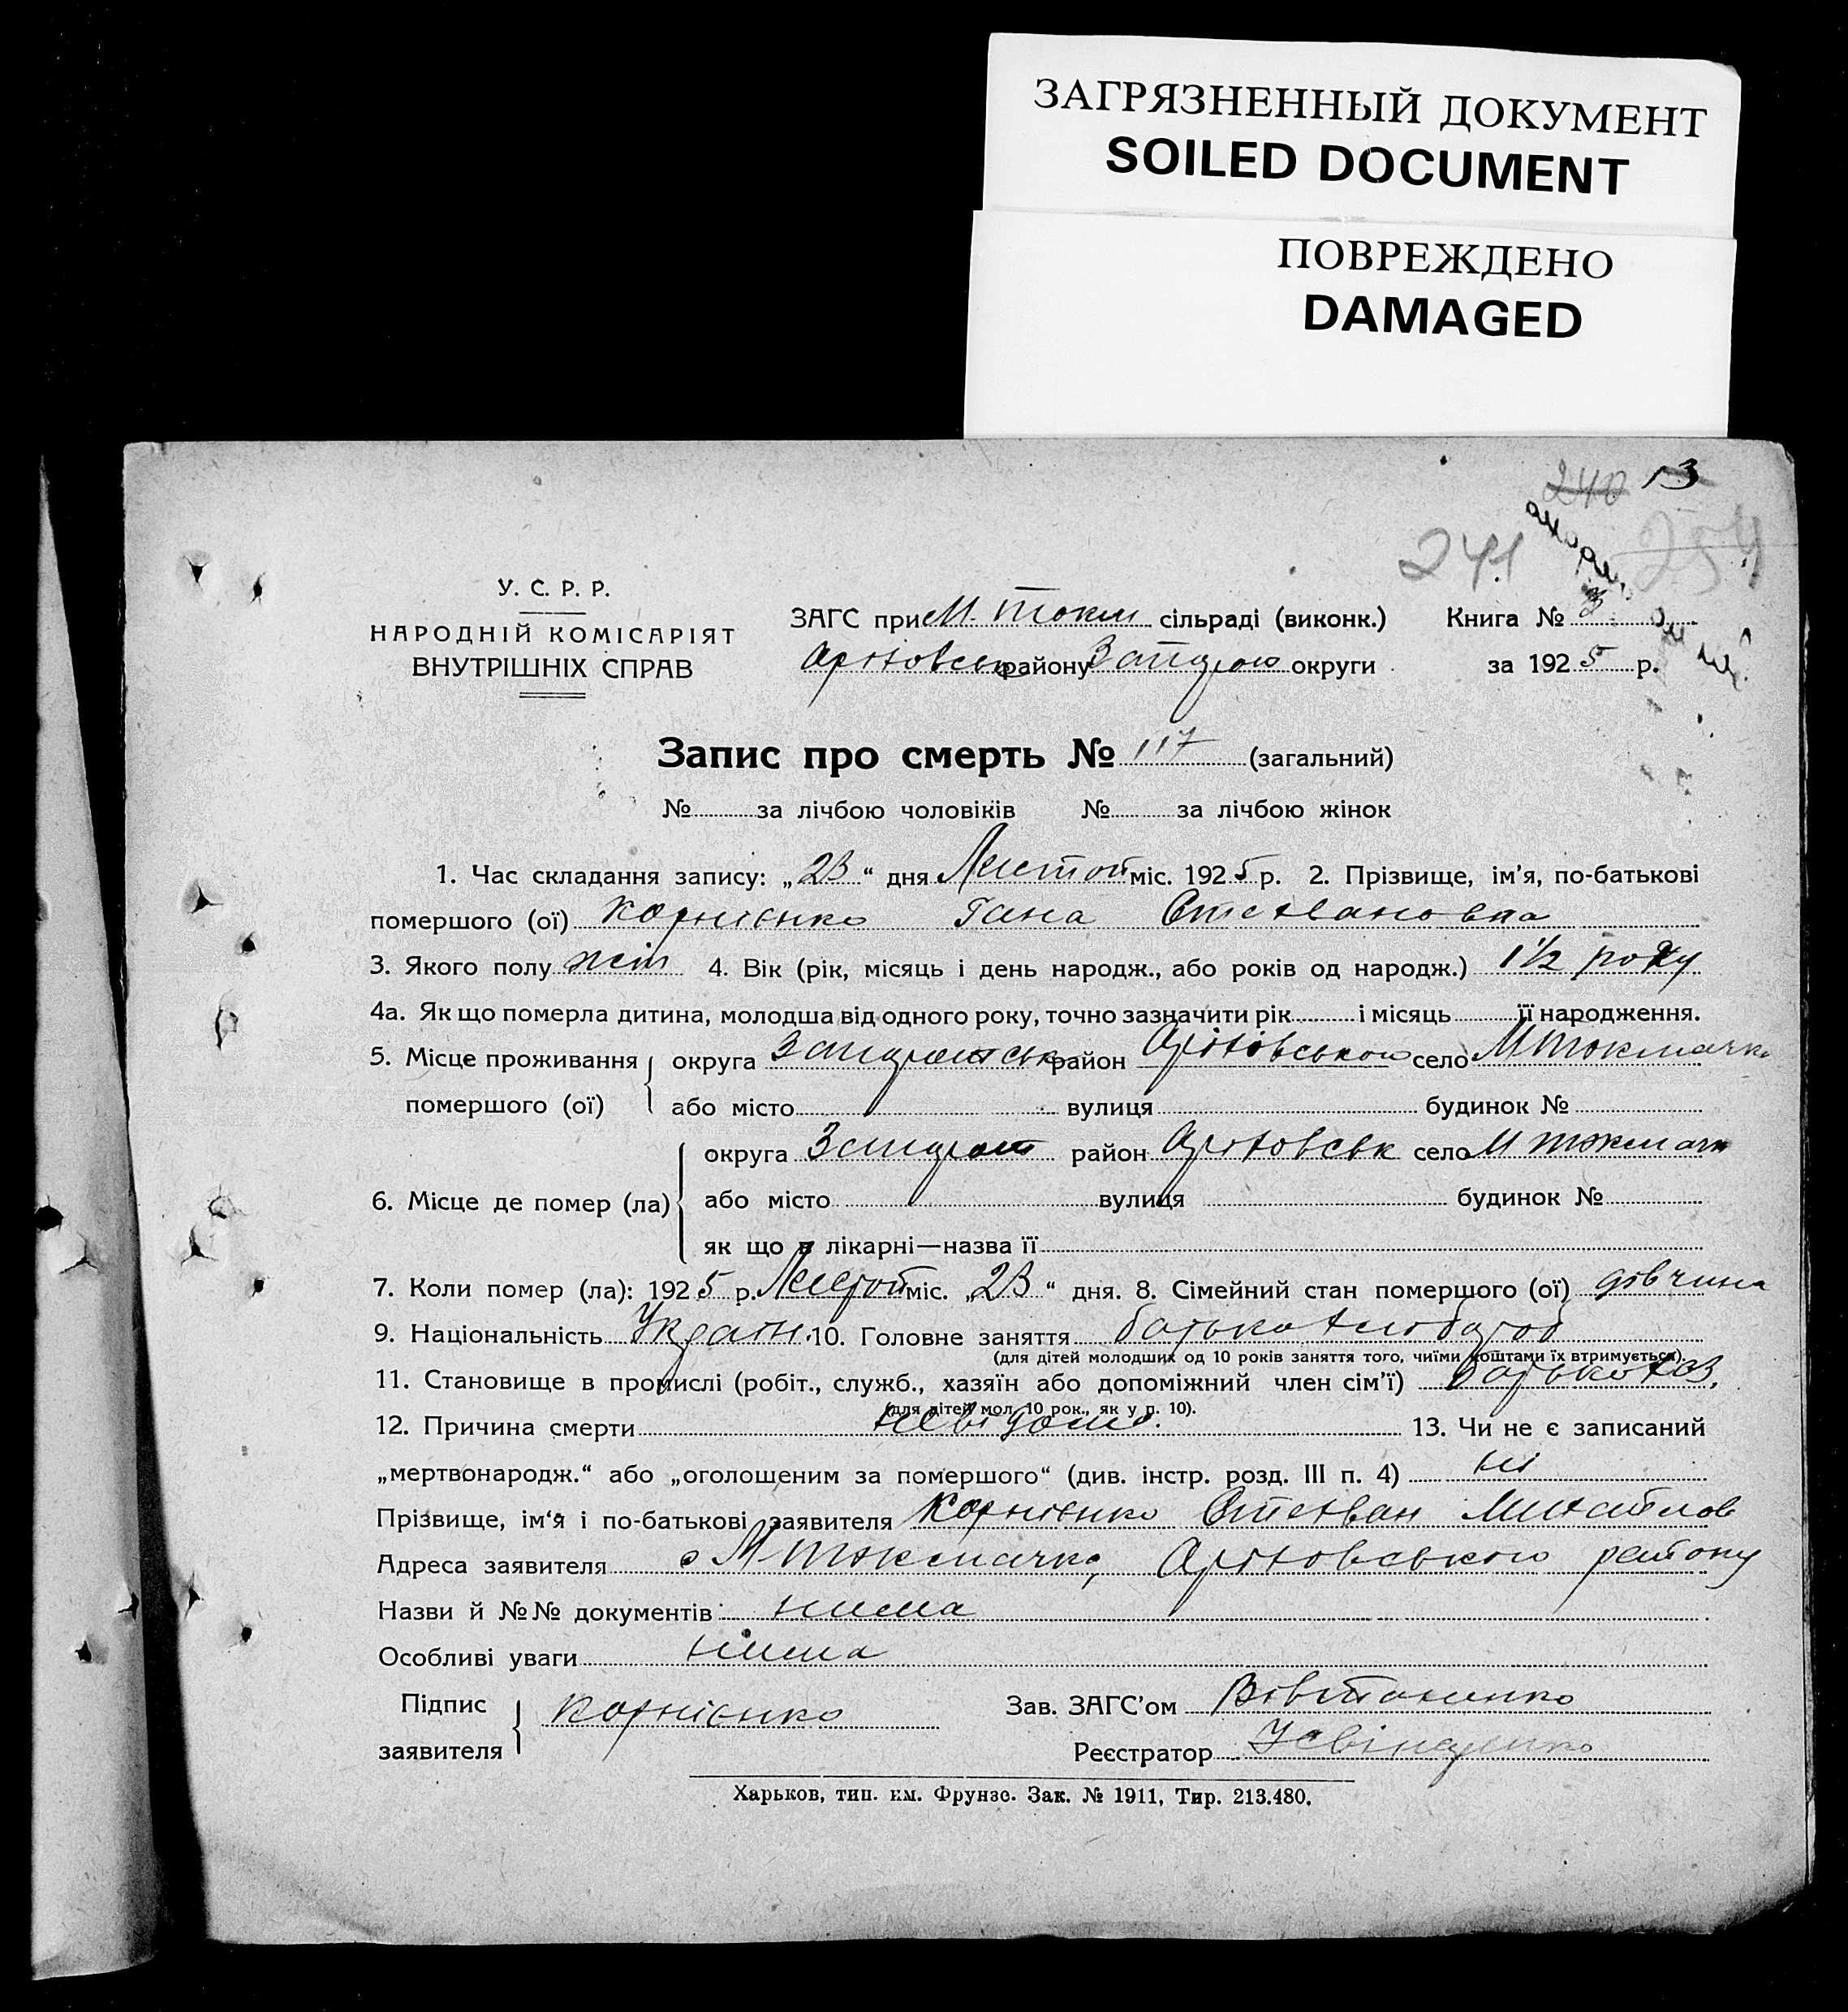 ЗАГРЯЗНЕННЫЙ ДОКУМЕНТ
SOILED DOCUMENT
ПОВРЕЖДЕНО
DAMAGED
240 13
241 254
У. С. Р. Р.
НАРОДНІЙ КОМІСАРІЯТ
ВНУТРІШНІХ СПРАВ
ЗАГС при М. Токм сільраді (виконк.) Книга № 3
Оріховськ району округи за 1925 р.
Запис про смерть № 117 (загальний)
№ за лічбою чоловіків № за лічбою жінок
1. Час складання запису: „23“ дня Листоп міс. 1925 р. 2. Прізвище, ім’я, по-батькові
помершого (ої) Корнієнко Гана Степановна
3. Якого полу жін 4. Вік (рік, місяць і день народж., або років од народж.) 1½ року
4а. Як що померла дитина, молодша від одного року, точно зазначити рік і місяць її народження.
5. Місце проживання округа район Оріховського село М Токмачка
помершого (ої) або місто вулиця будинок №
округа район Оріховськ село М Токмачк
6. Місце де помер (ла) або місто вулиця будинок №
як що в лікарні—назва її
7. Коли помер (ла): 1925 р. Листоп міс. „23“ дня. 8. Сімейний стан помершого (ої) дівчина
9. Національність Україн. 10. Головне заняття батько хлібороб
(для дітей молодших од 10 років заняття того, чиїми коштами їх втримується).
11. Становище в промислі (робіт., служб., хазяїн або допоміжний член сім’ї) батько хаз.
(для дітей мол. 10 рок., як у п. 10).
12. Причина смерти невідомо. 13. Чи не є записаний
„мертвонародж.“ або „оголошеним за помершого“ (див. інстр. розд. III п. 4) ні
Прізвище, ім‘я і по-батькові заявителя Корнієнко Степан Михайлов
Адреса заявителя с М Токмачка, Оріховського району
Назви й №№ документів нима
Особливі уваги нима
Підпис Зав. ЗАГС’ом
заявителя Корнієнко Реєстратор
Харьков, тип. им. Фрунзе. Зак. № 1911, Тир. 213.480.